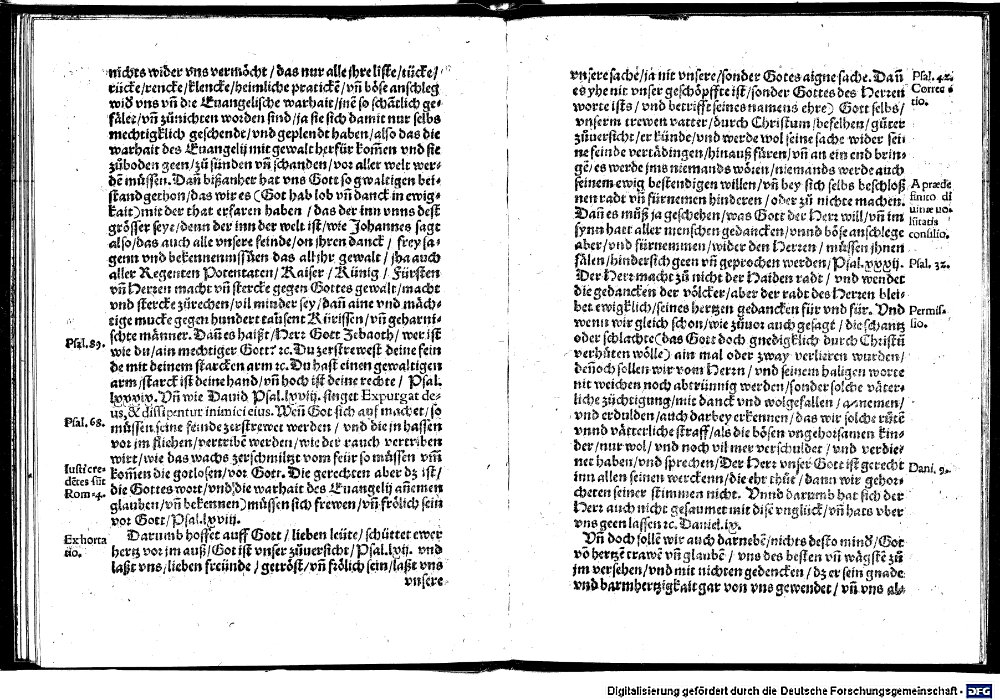 nichts wider vns vermöcht / das nur alle jhre liste / tücke /
rücke / rencke / klencke / heimliche praticke͂ / vn͂ böse anschleg
wid͛ vns vn͂ die Euangelische warhait / jne͂ so scha͂tlich ge-
fälet / vn͂ zünichten worden sind / ja sie sich damit nur selbs
mechtigklich geschendt / vnd geplendt haben / also das die
warhait des Euangelij mit gewalt herfür kom͂en vnd sie
zůboden geen / zů sünden vn͂ schanden / vor aller welt wer-
de͂ müssen. Dan͂ bißanher hat vns Gott so gwaltigen bei-
stand gethon / das wir es (Got hab lob vn͂ danck in ewig-
kait) mit der that erfaren haben / das der inn vnns dest
grösser seye / denn der inn der welt ist / wie Johannes sagt
also / das auch alle vnsere feinde / on jhren danck / frey sa-
genn vnd bekennen müssen das all jhr gewalt / jha auch
aller Regenten Potentaten / Kaiser / Künig / Fürsten
vn͂ Herzen macht vn͂ stercke gegen Gottes gewalt / macht
vnd stercke zürechen / vil minder sey / dan͂ aine vnd mäch-
tige mucke gegen hundert tausent Kürissen / vn͂ geharni-
schte männer. Dan͂ es haißt / Herr Gott Zebaoth / wer ist
Psal. 89.
wie du / ain mechtiger Gott? ꝛc. Du zerstrewest deine fein
de mit deinem starcken arm ꝛc. Du hast einen gewaltigen
arm / starck ist deine hand / vn͂ hoch ist deine rechte / Psal.
lxxxix. Vn͂ wie Dauid Psal. lxviij. singet Exurgat de-
us, & dissipentur inimici eius. Wen͂ Got sich auf machet / so
Psal. 68.
müssen seine feinde zerstrewet werden / vnd die in hassen
vor im fliehen / vertribe͂ werden / wie der rauch vertriben
wirt / wie das wachs zerschmiltzt vom feir so müssen vm͂
kom͂en die gotlosen / vor Gott. Die gerechten aber dz ist /
Iusti cre-
dētes sūt
Rom. 4.
die Gottes wort / vnd die warhait des Euangelij an͂emen
glauben / vn͂ bekennen) müssen sich frewen / vn͂ frölich sein
vor Gott / Psal. lxviij.
Exhorta
tio.
Darumb hoffet auff Gott / lieben leüte / schüttet ewer
hertz vor jm auß / Got ist vnser züuersicht / Psal. lxij. vnd
laßt vns / lieben freünde / getröst / vn͂ frölich sein / laßt vns
vnsere
vnsere sache / ja nit vnsere / sonder Gotes aigne sache. Dan͂
Psal. 42.
es yhe nit vnser geschöpffte ist / sonder Gottes des Herzen
Correc
tio.
worte ists / vnd betrifft seines namens ehre) Gott selbs /
vnserm trewen vatter / durch Christum / befelhen / gůter
züuersicht / er künde / vnd werde wol seine sache wider sei-
ne feinde vertädingen / hinauß füren / vn͂ an ein end brin-
ge͂ / es werde jms niemands wören / niemands werde auch
seinem ewig bestendigen willen / vn͂ bey sich selbs beschloß
A præde
finito di
uinæ uo-
lūtatis
consilio.
nen radt vn͂ fürnemen hinderen / oder zů nichte machen.
Dan͂ es můß ja geschehen / was Gott der Herr will / vn͂ im
synn hatt aller menschen gedancken / vnnd böse anschlege
aber / vnd fürnemmen / wider den Herzen / müssen jhnen
fälen / hindersich geen vn͂ geprochen werden / Psal. xxxij.
Psal. 32.
Der Herr macht zů nicht der Haiden radt / vnd wendet
die gedancken der völcker / aber der radt des Herzen blei-
bet ewigklich / seines hertzen gedancken für vnd für. Vnd
Permis-
sio.
wenn wir gleich schon / wie züuor auch gesagt / die schantz
oder schlachte (das Gott doch gnedigklich durch Christu͂
verhüten wölle) ain mal oder zway verlieren wurden /
den͂och sollen wir vom Herrn / vnd seinem haligen worte
nit weichen noch abtrünnig werden / sonder solche väter-
liche züchtigung / mit danck vnd wolgefallen / anemen /
vnd erdulden / auch darbey erkennen / das wir solche rüte͂
vnnd vätterliche straff / als die bösen vngehorsamen kin-
der / nur wol / vnd noch vil mer verschuldet / vnd verdie-
net haben / vnd sprechen / Der Herr vnser Gott ist gerecht
Dani. 9.
inn allen seinen werckenn / die ehr thüt / dann wir gehor-
cheten seiner stimmen nicht. Vnnd darumb hat sich der
Herr auch nicht gesaumet mit dise͂ vnglück / vn͂ hats vber
vns geen lassen ꝛc. Daniel. ix.
Vn͂ doch solle͂ wir auch darnebe͂ / nichts desto mind͛ / Got
vo͂ hertze͂ trawe͂ vn͂ glaube͂ / vns des besten vn͂ wägste͂ zů
jm versehen / vnd mit nichten gedencken / dz er sein gnade
vnd barmhertzigkait gar von vns gewendet / vn͂ vns al-
Digitalisierung gefördert durch die Deutsche Forschungsgemeinschaft - DFG